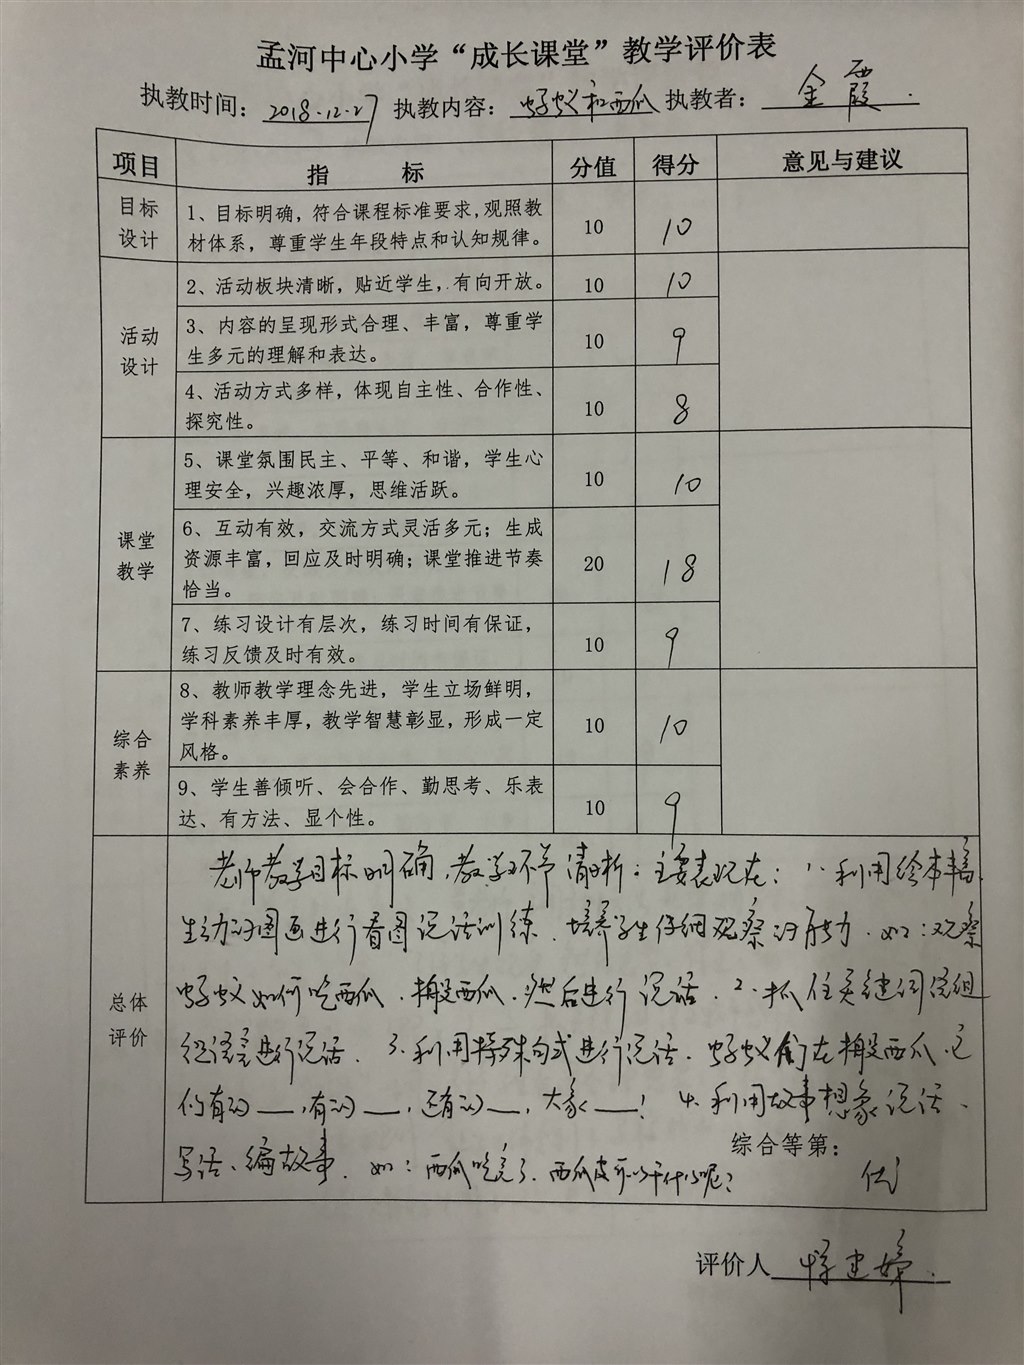 孟河中心小学“成长课堂”教学评价表
执教时间：2018.12.27 执教内容：蚂蚁和西瓜 执教者：金霞.
项目 指 标 分值 得分 意见与建议
目标
设计
1、目标明确，符合课程标准要求,观照教
材体系，尊重学生年段特点和认知规律。
10 10
活动
设计
2、活动板块清晰，贴近学生，有向开放。
10 10
3、内容的呈现形式合理、丰富，尊重学
生多元的理解和表达。
10 9
4、活动方式多样，体现自主性、合作性、
探究性。
10 8
课堂
教学
5、课堂氛围民主、平等、和谐，学生心
理安全，兴趣浓厚，思维活跃。
10 10
6、互动有效，交流方式灵活多元；生成
资源丰富，回应及时明确；课堂推进节奏
恰当。
20 18
7、练习设计有层次，练习时间有保证，
练习反馈及时有效。
10 9
综合
素养
8、教师教学理念先进，学生立场鲜明，
学科素养丰厚，教学智慧彰显，形成一定
风格。
10 10
9、学生善倾听、会合作、勤思考、乐表
达、有方法、显个性。
10 9
总体
评价
老师教学目标明确，教学环节清晰：主要表现在：1、利用绘本丰富
生动的图画进行看图说话训练，培养学生仔细观察的能力．如：观察
蚂蚁如何吃西瓜、搬西瓜．然后进行说话．2、抓住关键词
进行说话．3、利用特殊句式进行说话．蚂蚁们在搬西瓜．它
们有的＿＿，有的＿＿，还有的＿＿，大家＿＿！4、利用故事想象说话、
写话、编故事．如：西瓜吃完了．西瓜皮可以干什么呢？
综合等第：
优
评价人 恽建婷.